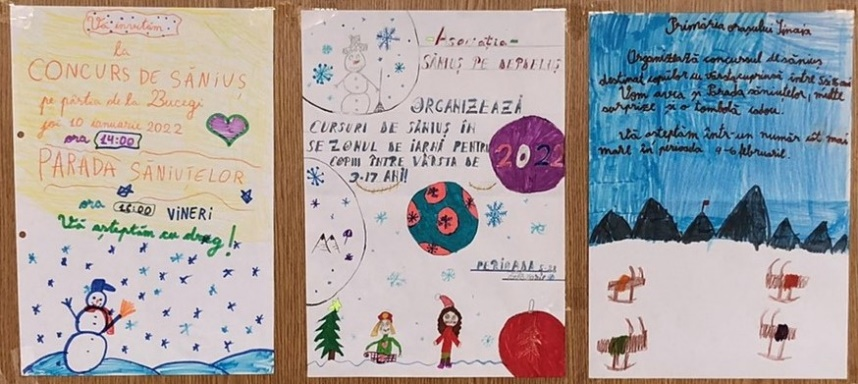 Vă invităm
la
CONCURS DE SĂNIUȘ
pe pârtia de la Bucegi
joi 10 ianuarie 2022
ora 14:00
PARADA SĂNIUȚELOR
ora 15:00 VINERI
Vă așteptăm cu drag!
Asociația
SĂNIUȘ PE DERDELUȘ
ORGANIZEAZĂ
CURSURI DE SĂNIUȘ ÎN
SEZONUL DE IARNĂ PENTRU
COPIII ÎNTRE VÂRSTA DE
3-17 ANI!
2022
PERIOADA
Primăria orașului Sinaia
Organizează concursul de săniuș
destinat copiilor cu vârsta cuprinsă între
Vom avea și Parada săniuțelor, multe
surprize și o tombolă
Vă așteptăm într-un număr cât mai
mare în perioada 4-6 februarie.